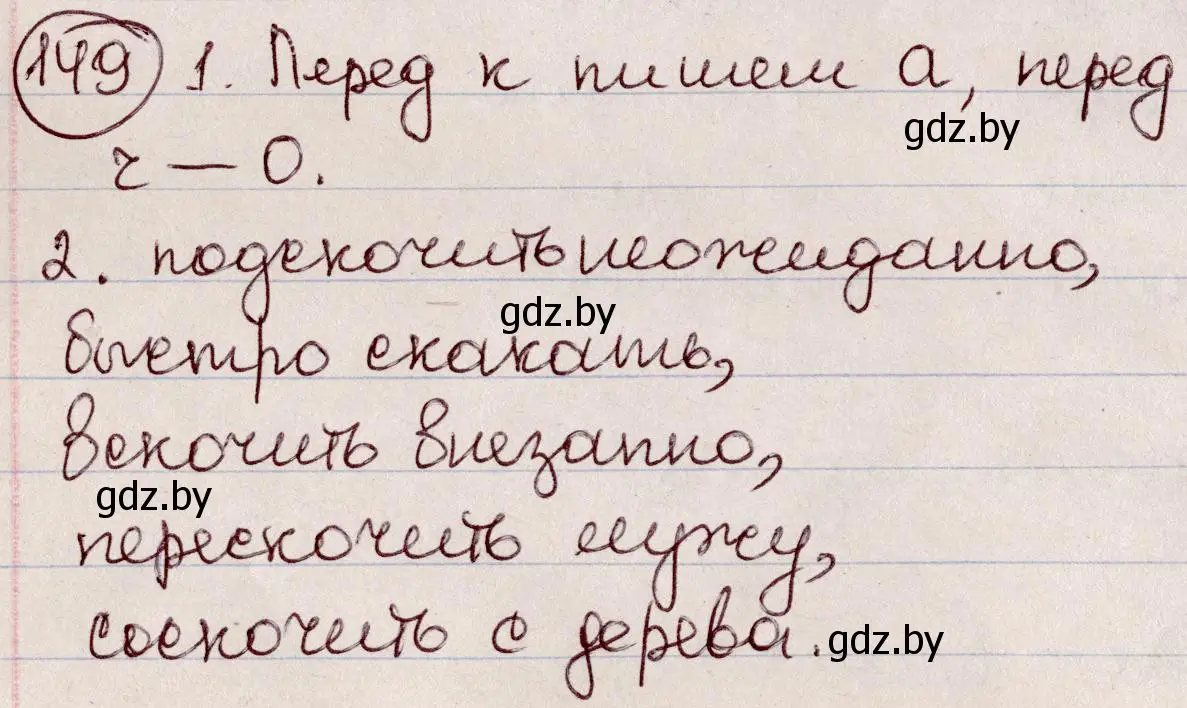 149 1. Перед к пишем а, перед
gdz.by
ч — о.
2. подскочить неожиданно,
gdz.by
быстро скакать,
вскочить внезапно,
gdz.by
перескочить лужу,
соскочить с дерева.
gdz.by